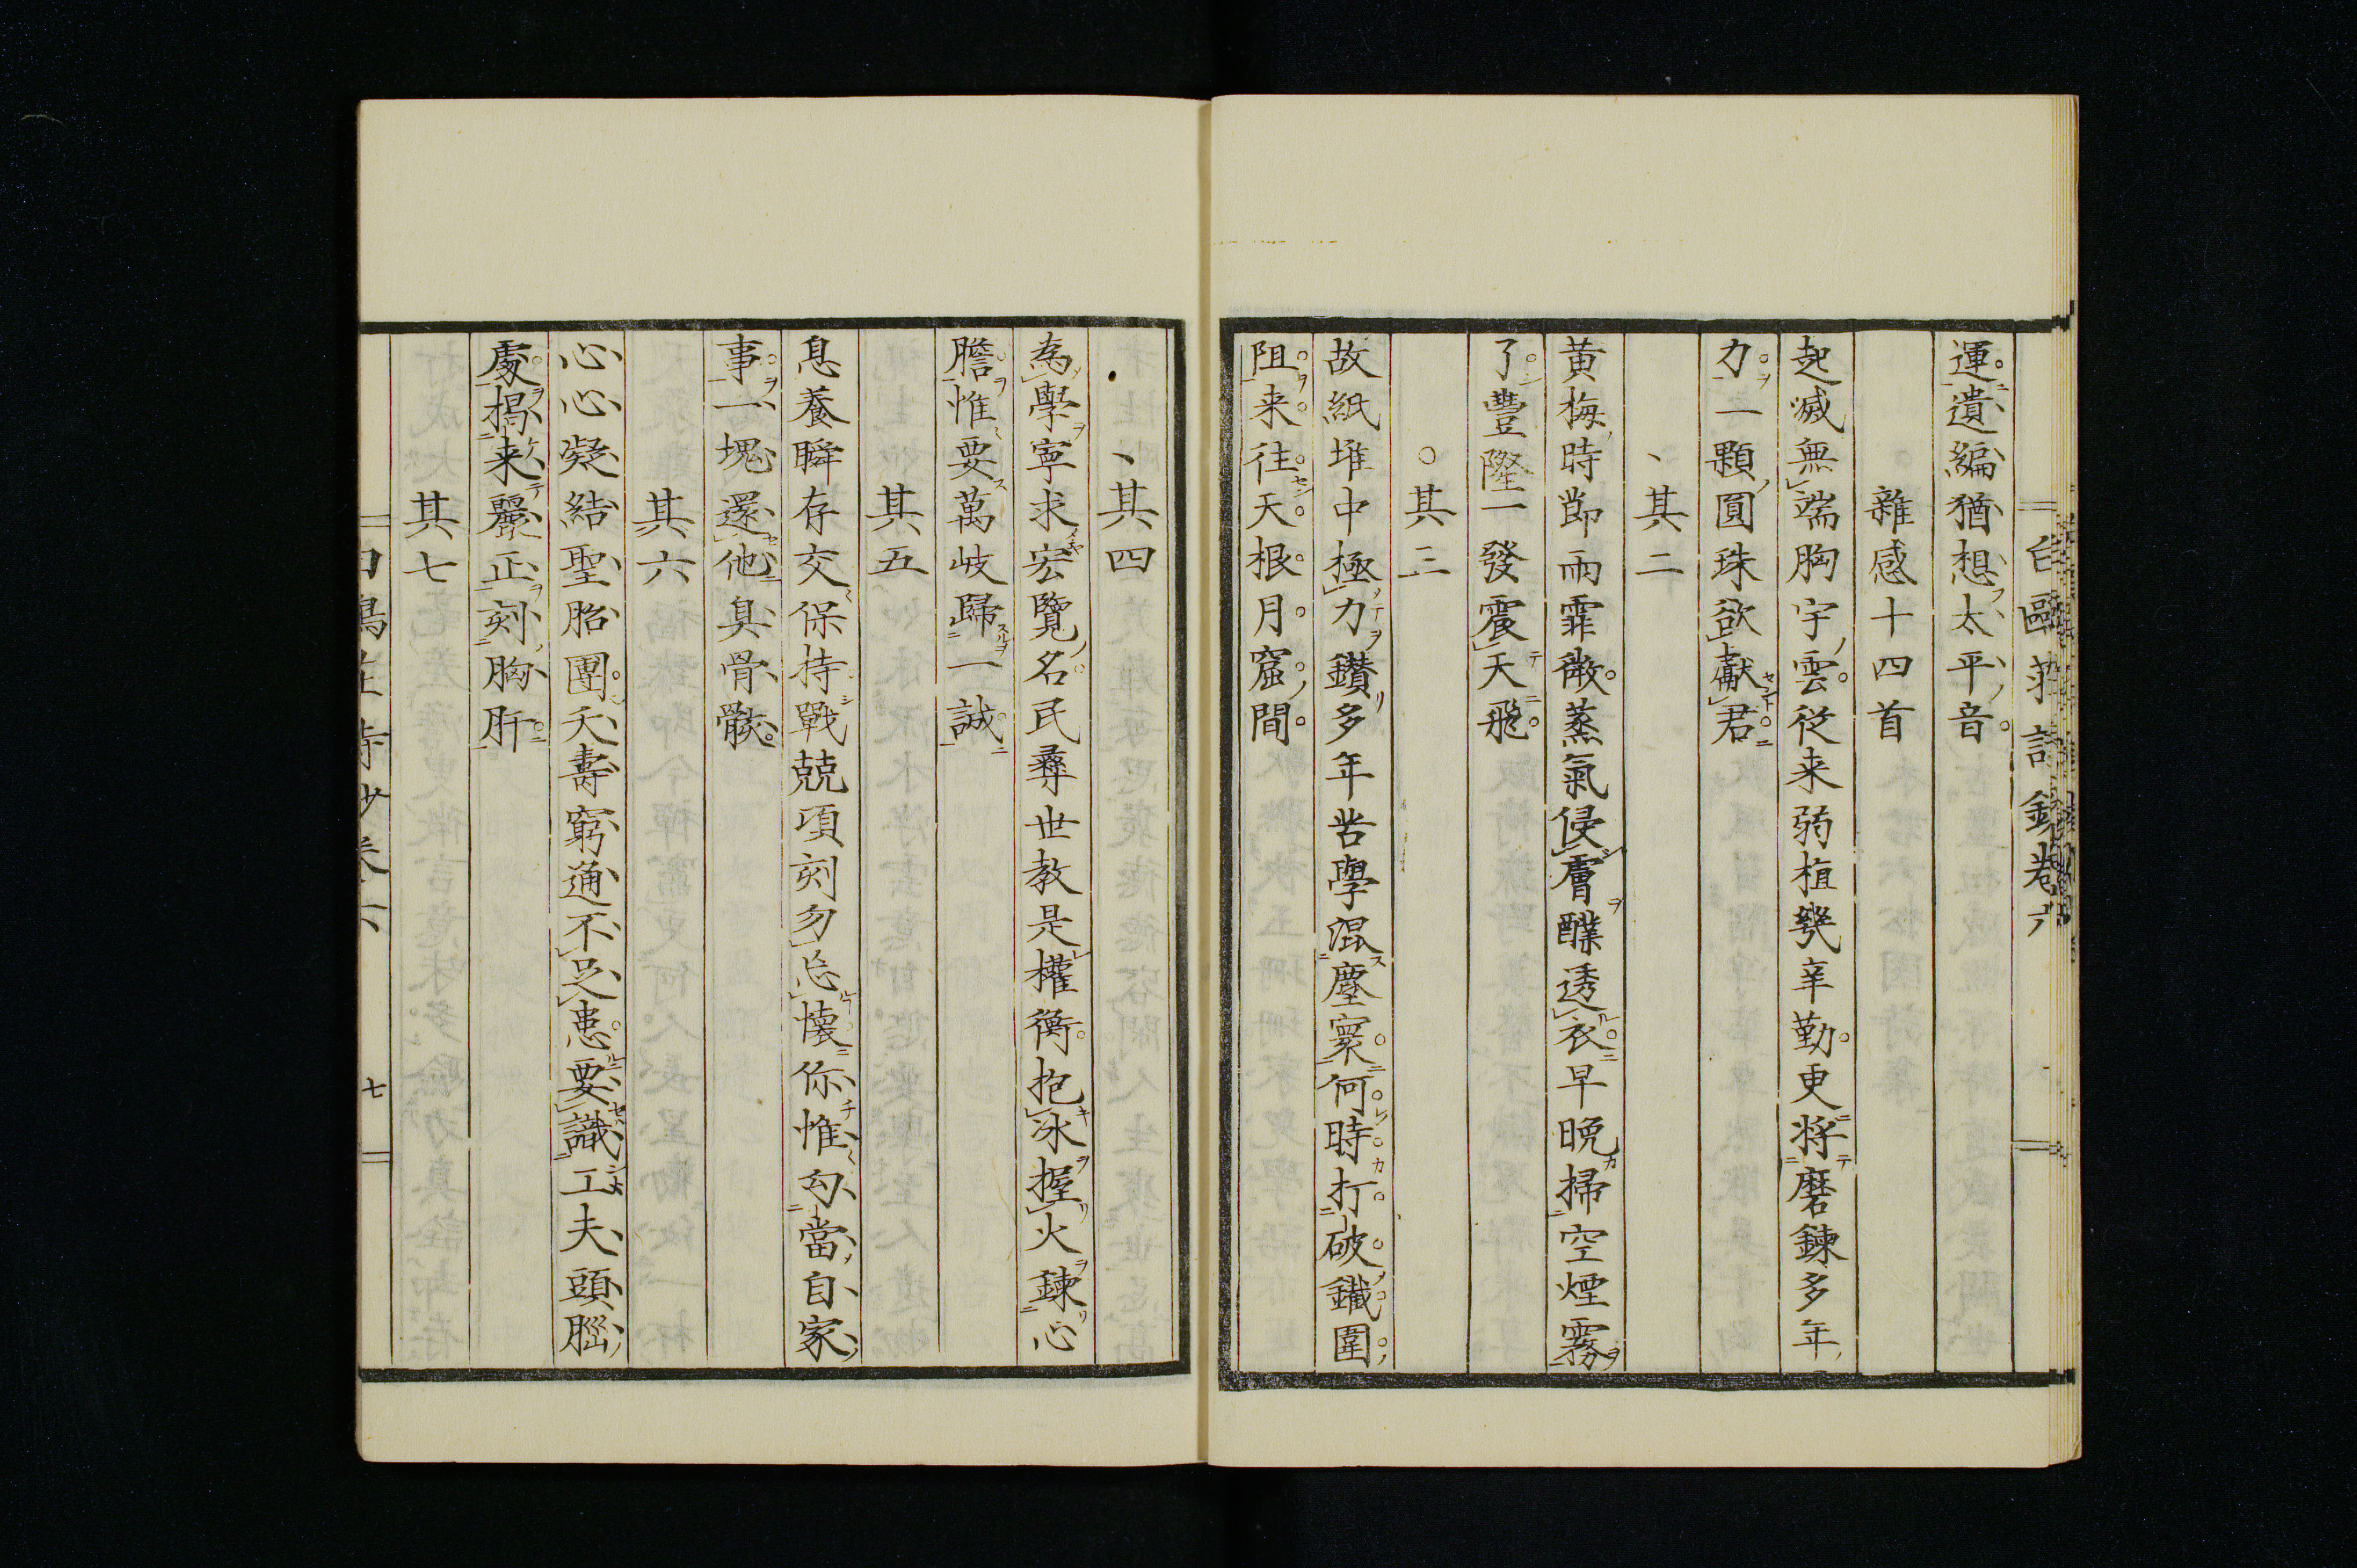 白鷗荘詩鈔卷六
運遺編猶想太平音
雜感十四首
起滅無端胸宇雲從来弱植幾辛勤更將磨鍊多年
力一顆圓珠欲獻君
其二
黄梅時節雨霏微蒸氣侵膚醭透衣早晚掃空煙霧
了豐隆一發震天飛
其三
故紙堆中極力鑽多年苦學混塵寰何時打破鐵圍
阻来往天根月窟間
其四
為學寧求宏覽名民彝世教是權衡抱冰握火鍊心
膽惟要萬岐歸一誠
其五
息養瞬存交保持戰兢頃刻勿忘懷你惟勾當自家
事一塊還他臭骨骸
其六
心心凝結聖胎團夭壽窮通不足患要識工夫頭腦
處揭来麗正刻胸肝
其七
七